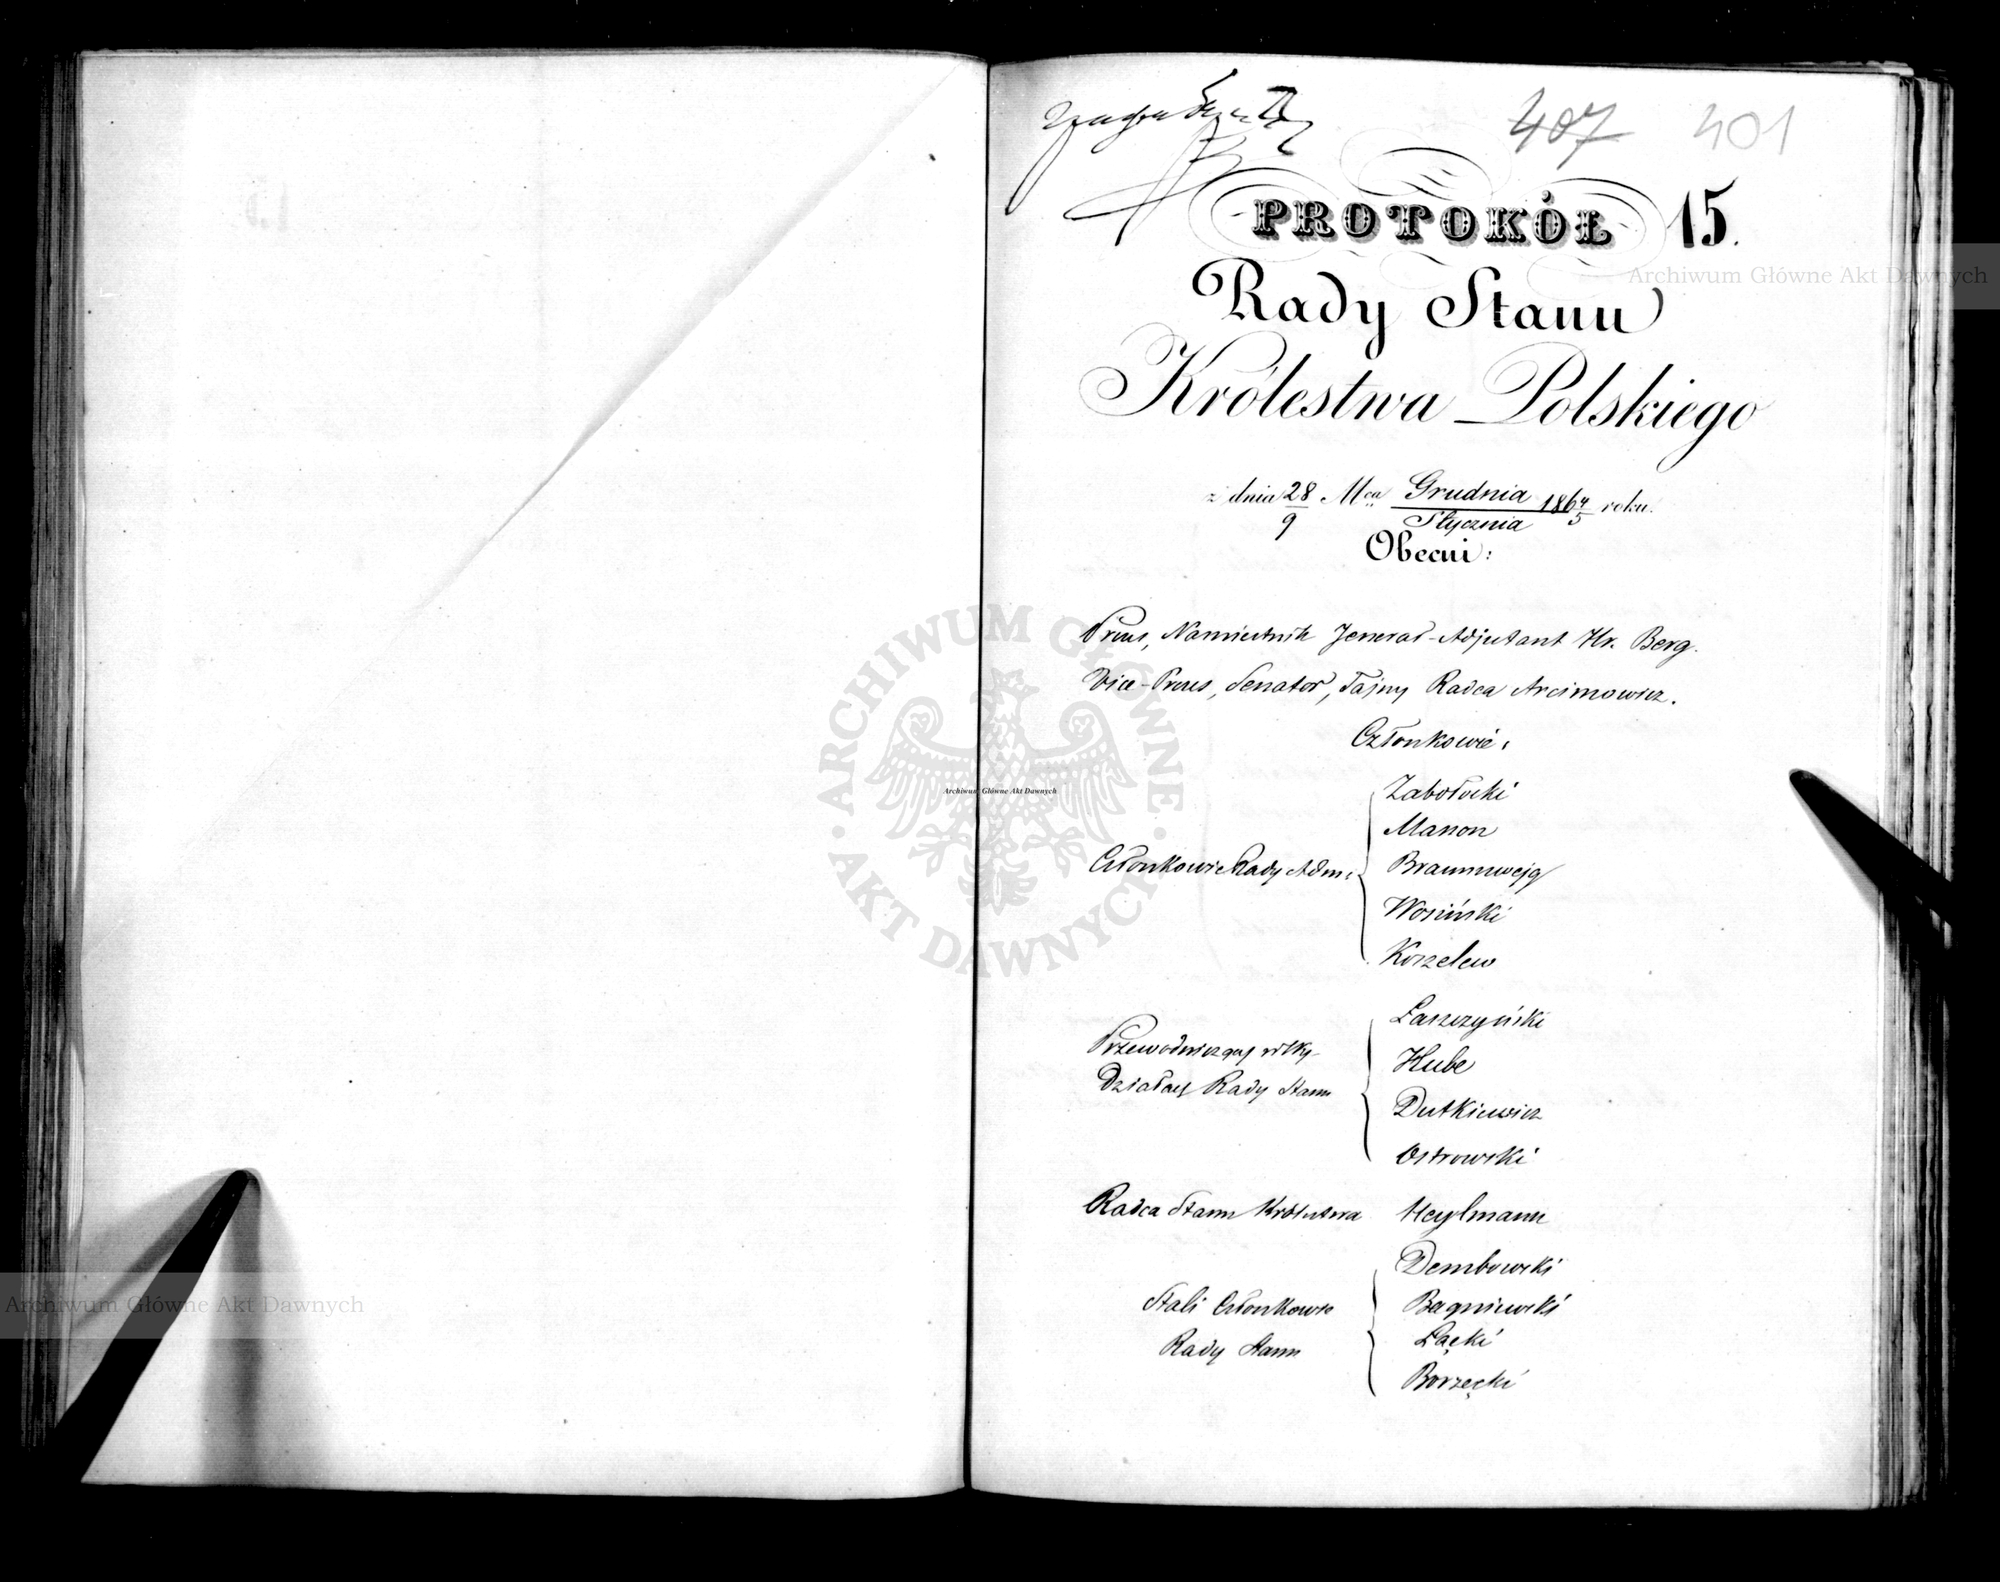 407 401
PROTOKÓŁ 15.
Rady Stanu
Królestwa Polskiego
z dnia 28/9 Mca Grudnia/Stycznia 1864/5 roku.
Obecni:
Prezes, Namiestnik Jenerał-Adjutant Hr. Berg.
Vice-Prezes, Senator, Tajny Radca Arcimowicz.
Członkowie:
Członkowie Rady Adm:
Zabołocki
Manon
Braunszwejg
Wosiński
Koszelew
Przewodniczący w
Działach Rady Stanu
Łaszczyński
Hube
Dutkiewicz
Ostrowski
Radca Stanu Królestwa Heylmann
Stali Członkowie
Rady Stanu
Dembowski
Bagniewski
Łącki
Borzęcki
Archiwum Główne Akt Dawnych
ARCHIWUM GŁÓWNE
AKT DAWNYCH
Archiwum Główne Akt Dawnych
Archiwum Główne Akt Dawnych